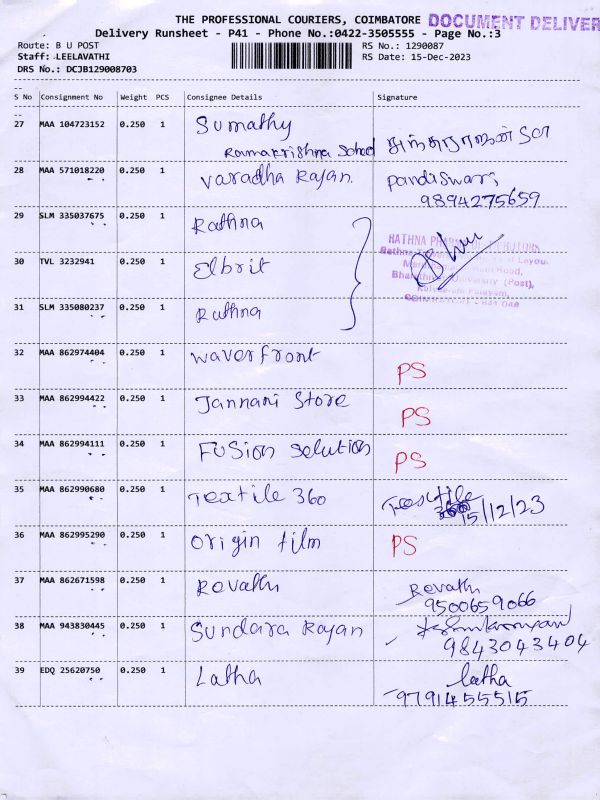 THE PROFESSIONAL COURIERS, COIMBATORE
DOCUMENT DELIVER
Delivery Runsheet - P41 - Phone No.:0422-3505555 - Page No.:3
Route: B U POST
RS No.: 1290087
Staff: LEELAVATHI
RS Date: 15-Dec-2023
DRS No.: DCJB129008703
S No Consignment No Weight PCS Consignee Details Signature
27 MAA 104723152 0.250 1 Sumathy
Ramakrishna School
28 MAA 571018220 0.250 1 Varadha Rajan. Pandiswari
9894275659
29 SLM 335037675 0.250 1 Rathna
RATHNA
30 TVL 3232941 0.250 1 Elbrit
(Post),
31 SLM 335080237 0.250 1 Rathna
32 MAA 862974404 0.250 1 Waverfront PS
33 MAA 862994422 0.250 1 Jannani Store PS
34 MAA 862994111 0.250 1 Fusion Solution PS
35 MAA 862990680 0.250 1 Textile 360 Textile
360 15/12/23
36 MAA 862995290 0.250 1 Origin film PS
37 MAA 862671598 0.250 1 Revathi Revathi
9500659066
38 MAA 943830445 0.250 1 Sundara Rajan
9843043404
39 EDQ 25620750 0.250 1 Latha latha
9791455515